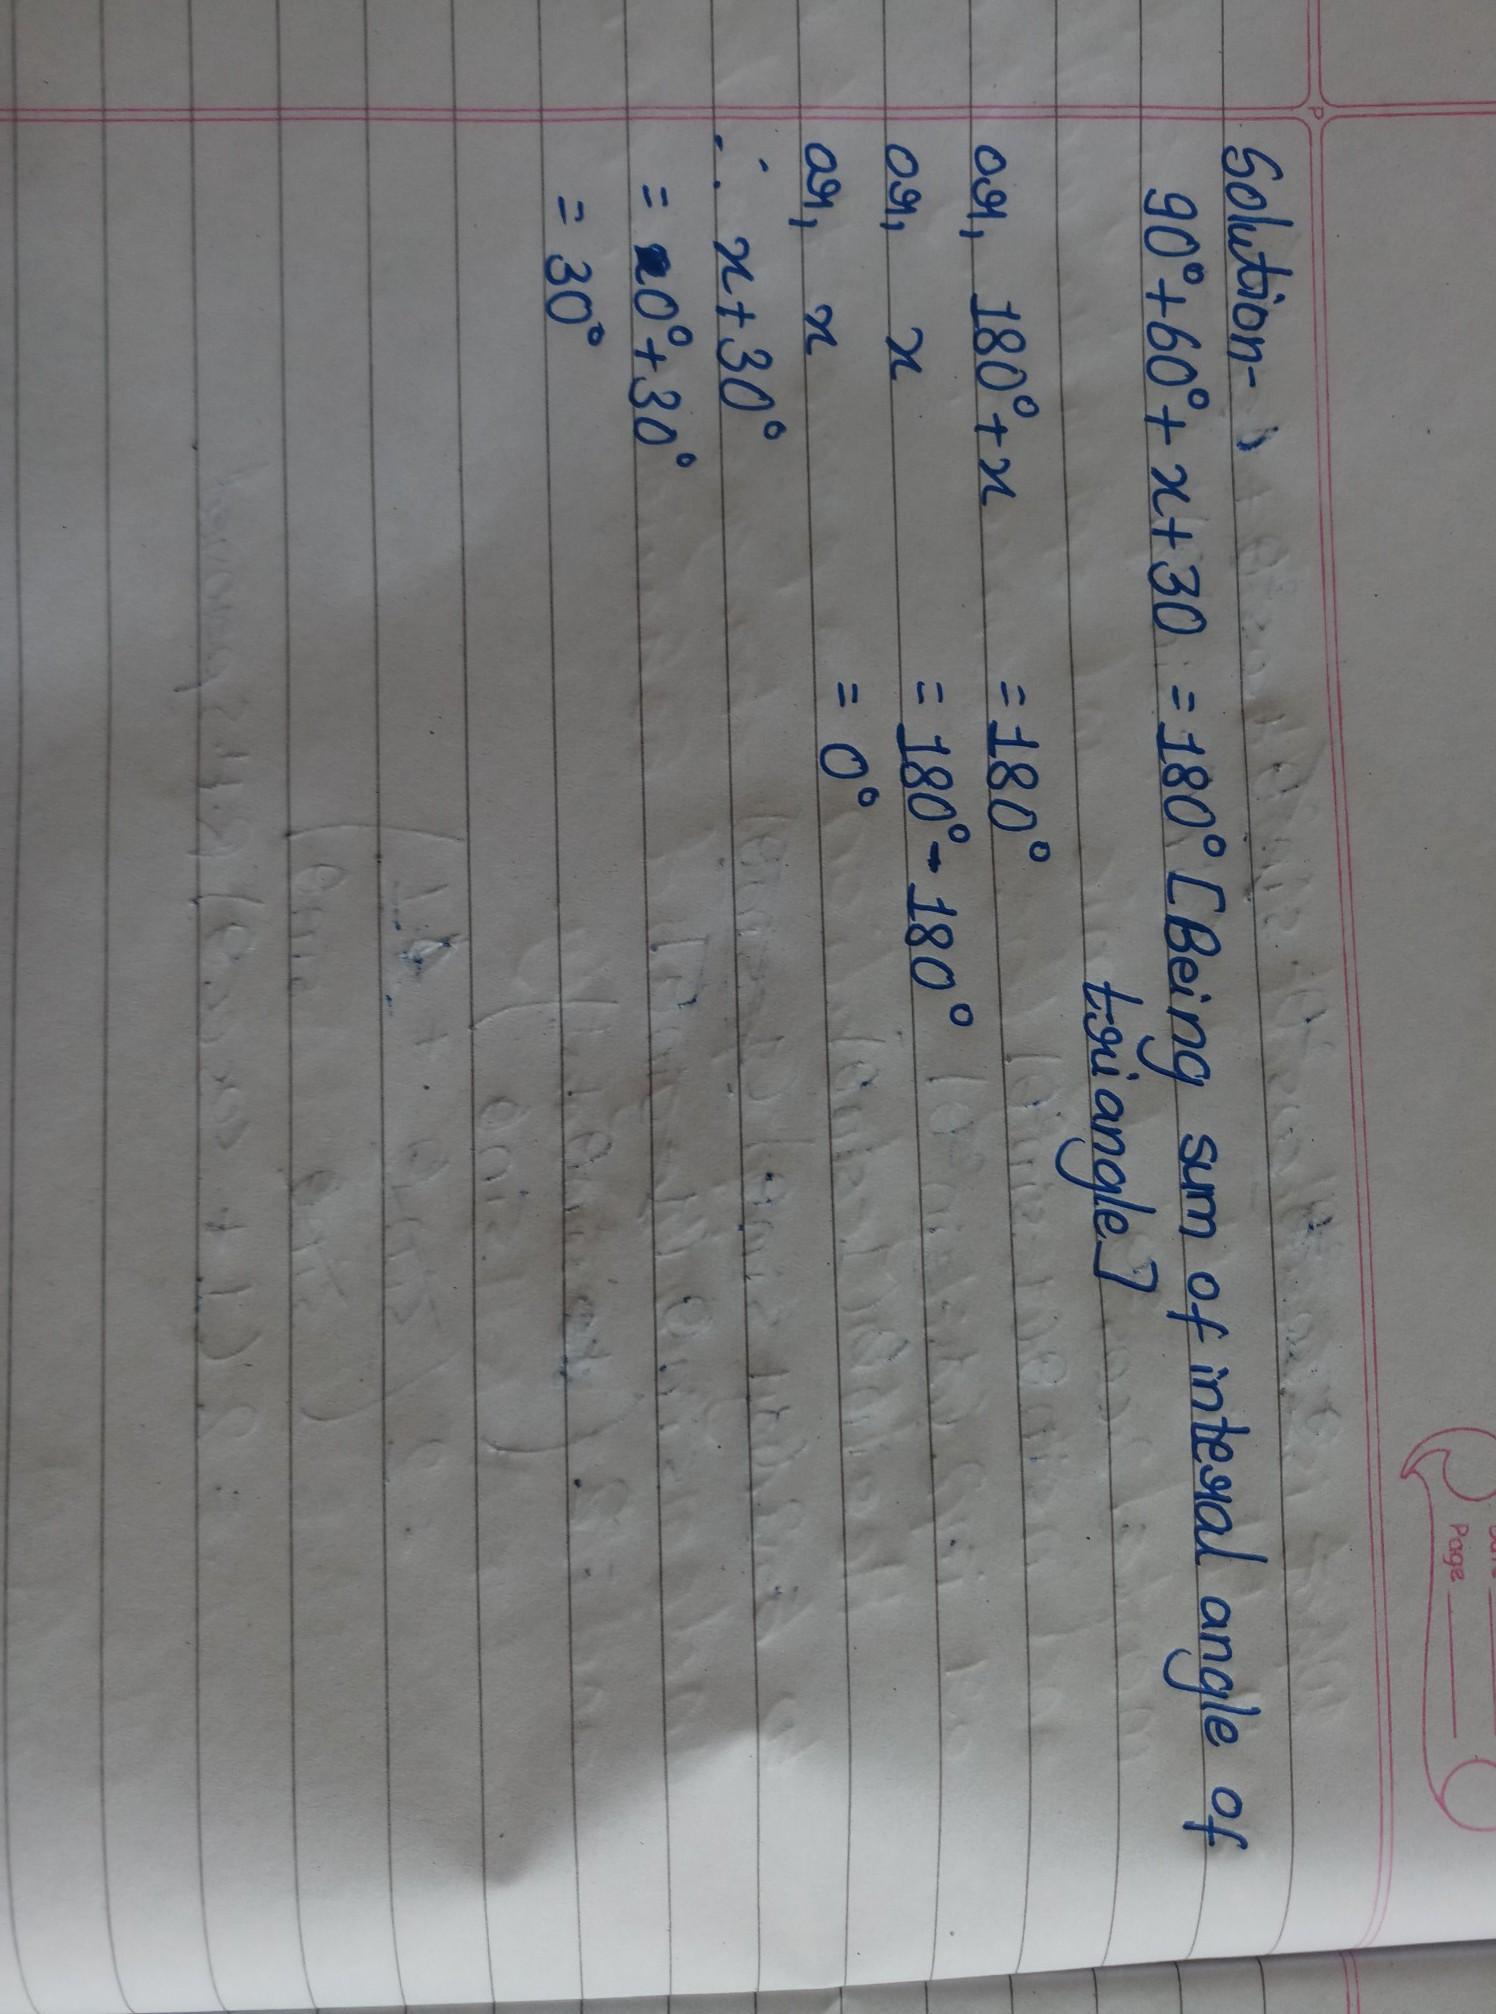 Page
Solution-
90°+60°+x+30 =180° [Being sum of interal angle of
triangle]
or, 180°+x =180°
or, x =180°-180°
or, x = 0°
∴ x+30°
= 0°+30°
= 30°